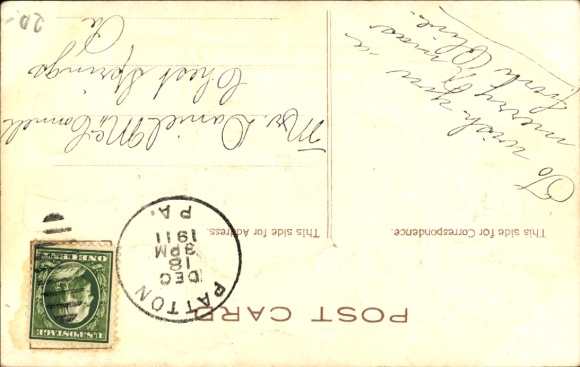 POST CARD
PATTON
DEC
18
3PM
1911
PA.
U.S. POSTAGE
ONE CENT
This side for Correspondence.
This side for Address.
To wish you a
merry Xmas
from Olive.
Mr. Daniel McConnell
Chest Springs
Pa
20-